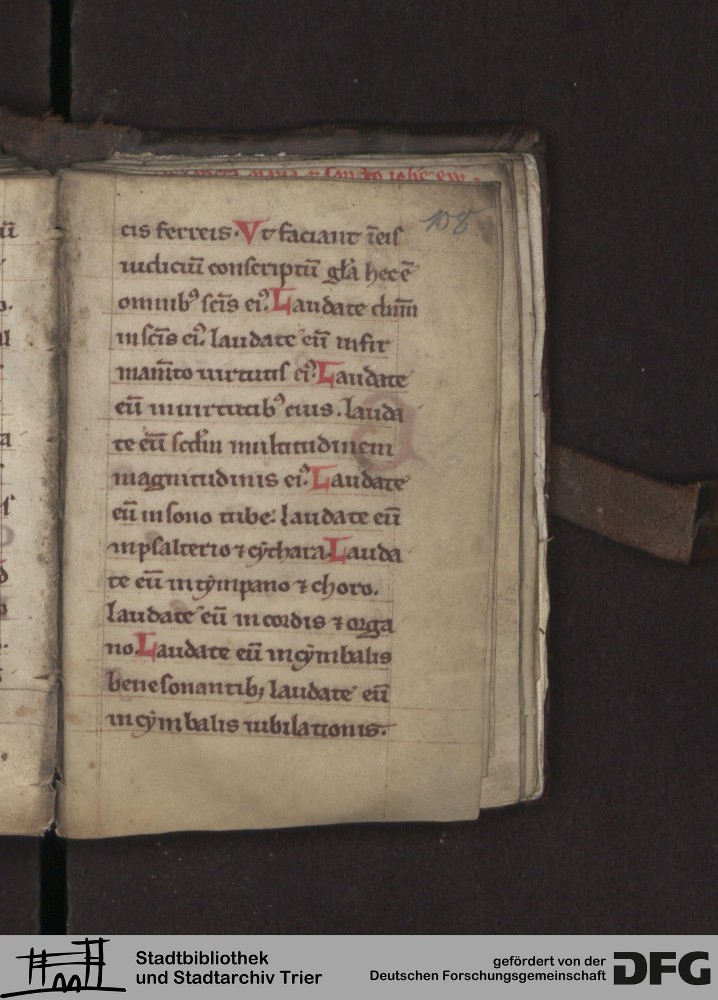 108
cis ferreis. Vt faciant ī eis
iudiciū conscriptū gl̄a hec ē
omnibꝰ sc̄is eiꝰ. Laudate dn̄m
in sc̄is eiꝰ. laudate eū in fir
mam̄to uirtutis eiꝰ. Laudate
eū in uirtutibꝰ eius. lauda
te eū scd̄m multitudinem
magnitudinis eiꝰ. Laudate
eū in sono tube. laudate eū
in psalterio ⁊ cẏthara. Lauda
te eū in tẏmpano ⁊ choro.
laudate eū in cordis ⁊ orga
no. Laudate eū in cẏmbalis
benesonantibꝫ laudate eū
in cẏmbalis iubilationis.
Stadtbibliothek
und Stadtarchiv Trier
gefördert von der
Deutschen Forschungsgemeinschaft
DFG